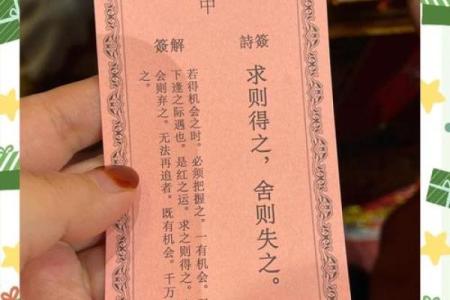 中
簽詩
求则得之，舍则失之。
解簽
若得机会之时。必须把握之。一有机会。
下逢之际遇也。是红之运。求之则得之。
会则弃之。无法再追者。既有机会。千万
之。